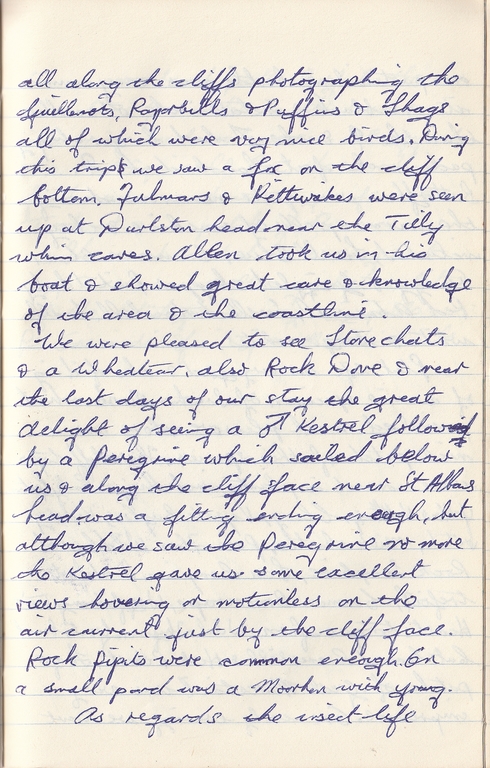 all along the cliffs photographing the
Guillemots, Razorbills & Puffins & Shags
all of which were very nice birds. During
this trip we saw a fox on the cliff
bottom. Fulmars & Kittiwakes were seen
up at Durlston head near the Tilly
whim caves. Allen took us in his
boat & showed great care & knowledge
of the area & the coastline.
We were pleased to see Stonechats
& a Wheatear, also Rock Dove & near
the last days of our stay the great
delight of seeing a ♂ Kestrel followed
by a Peregrine which sailed below
us & along the cliff face near St Albans
head was a fitting ending enough, but
although we saw the Peregrine no more
the Kestrel gave us some excellent
views hovering or motionless on the
air current just by the cliff face.
Rock Pipits were common enough. On
a small pond was a Moorhen with young.
As regards the insect life